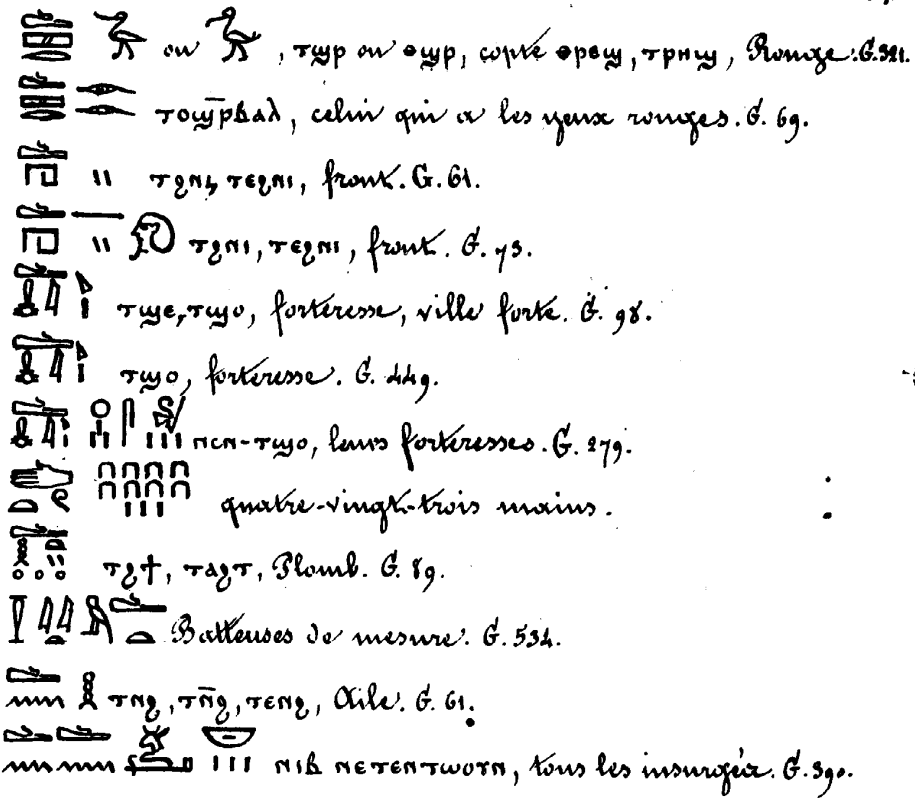 ou , ⲧϣⲣ ou ⲑϣⲣ, copte ⲑⲣⲉϣ, ⲧⲣⲏϣ, Rouge. G. 321.
ⲧⲟϣ̅ⲣⲃⲁⲗ, celui qui a les yeux rouges. G. 69.
ⲧϩⲛⲓ, ⲧⲉϩⲛⲓ, front. G. 61.
ⲧϩⲛⲓ, ⲧⲉϩⲛⲓ, front. G. 73.
ⲧϣⲉ, ⲧϣⲟ, forteresse, ville forte. G. 98.
ⲧϣⲟ, forteresse. G. 449.
ⲛⲥⲛ-ⲧϣⲟ, leurs forteresses. G. 279.
quatre-vingt-trois mains.
ⲧϩϯ, ⲧⲁϩⲧ, Plomb. G. 89.
Batteuses de mesure. G. 534.
ⲧⲛϩ, ⲧⲛ̅ϩ, ⲧⲉⲛϩ, Aile. G. 61.
ⲛⲓⲃ ⲛⲉⲧⲉⲛⲧⲱⲟⲩⲛ, tous les insurgés. G. 390.